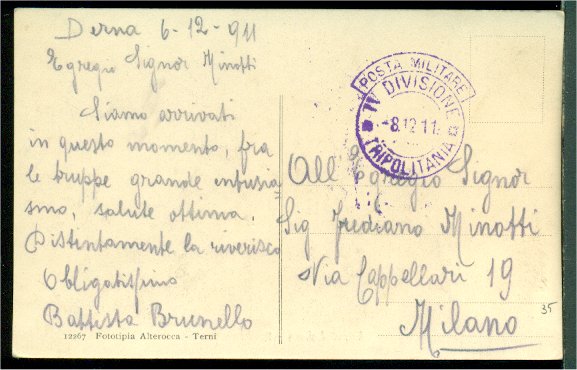 Derna 6-12-911
Egregio Signor Minotti
Siamo arrivati
in questo momento, fra
le truppe grande entusia
smo, salute ottima.
Distintamente la riverisco
Obligatissimo
Battista Brunello
12267 Fototipia Alterocca - Terni
POSTA MILITARE
IV DIVISIONE
-8.12.11.
TRIPOLITANIA
All'Egregio Signor
Sig Frediano Minotti
Via Cappellari 19
Milano
35